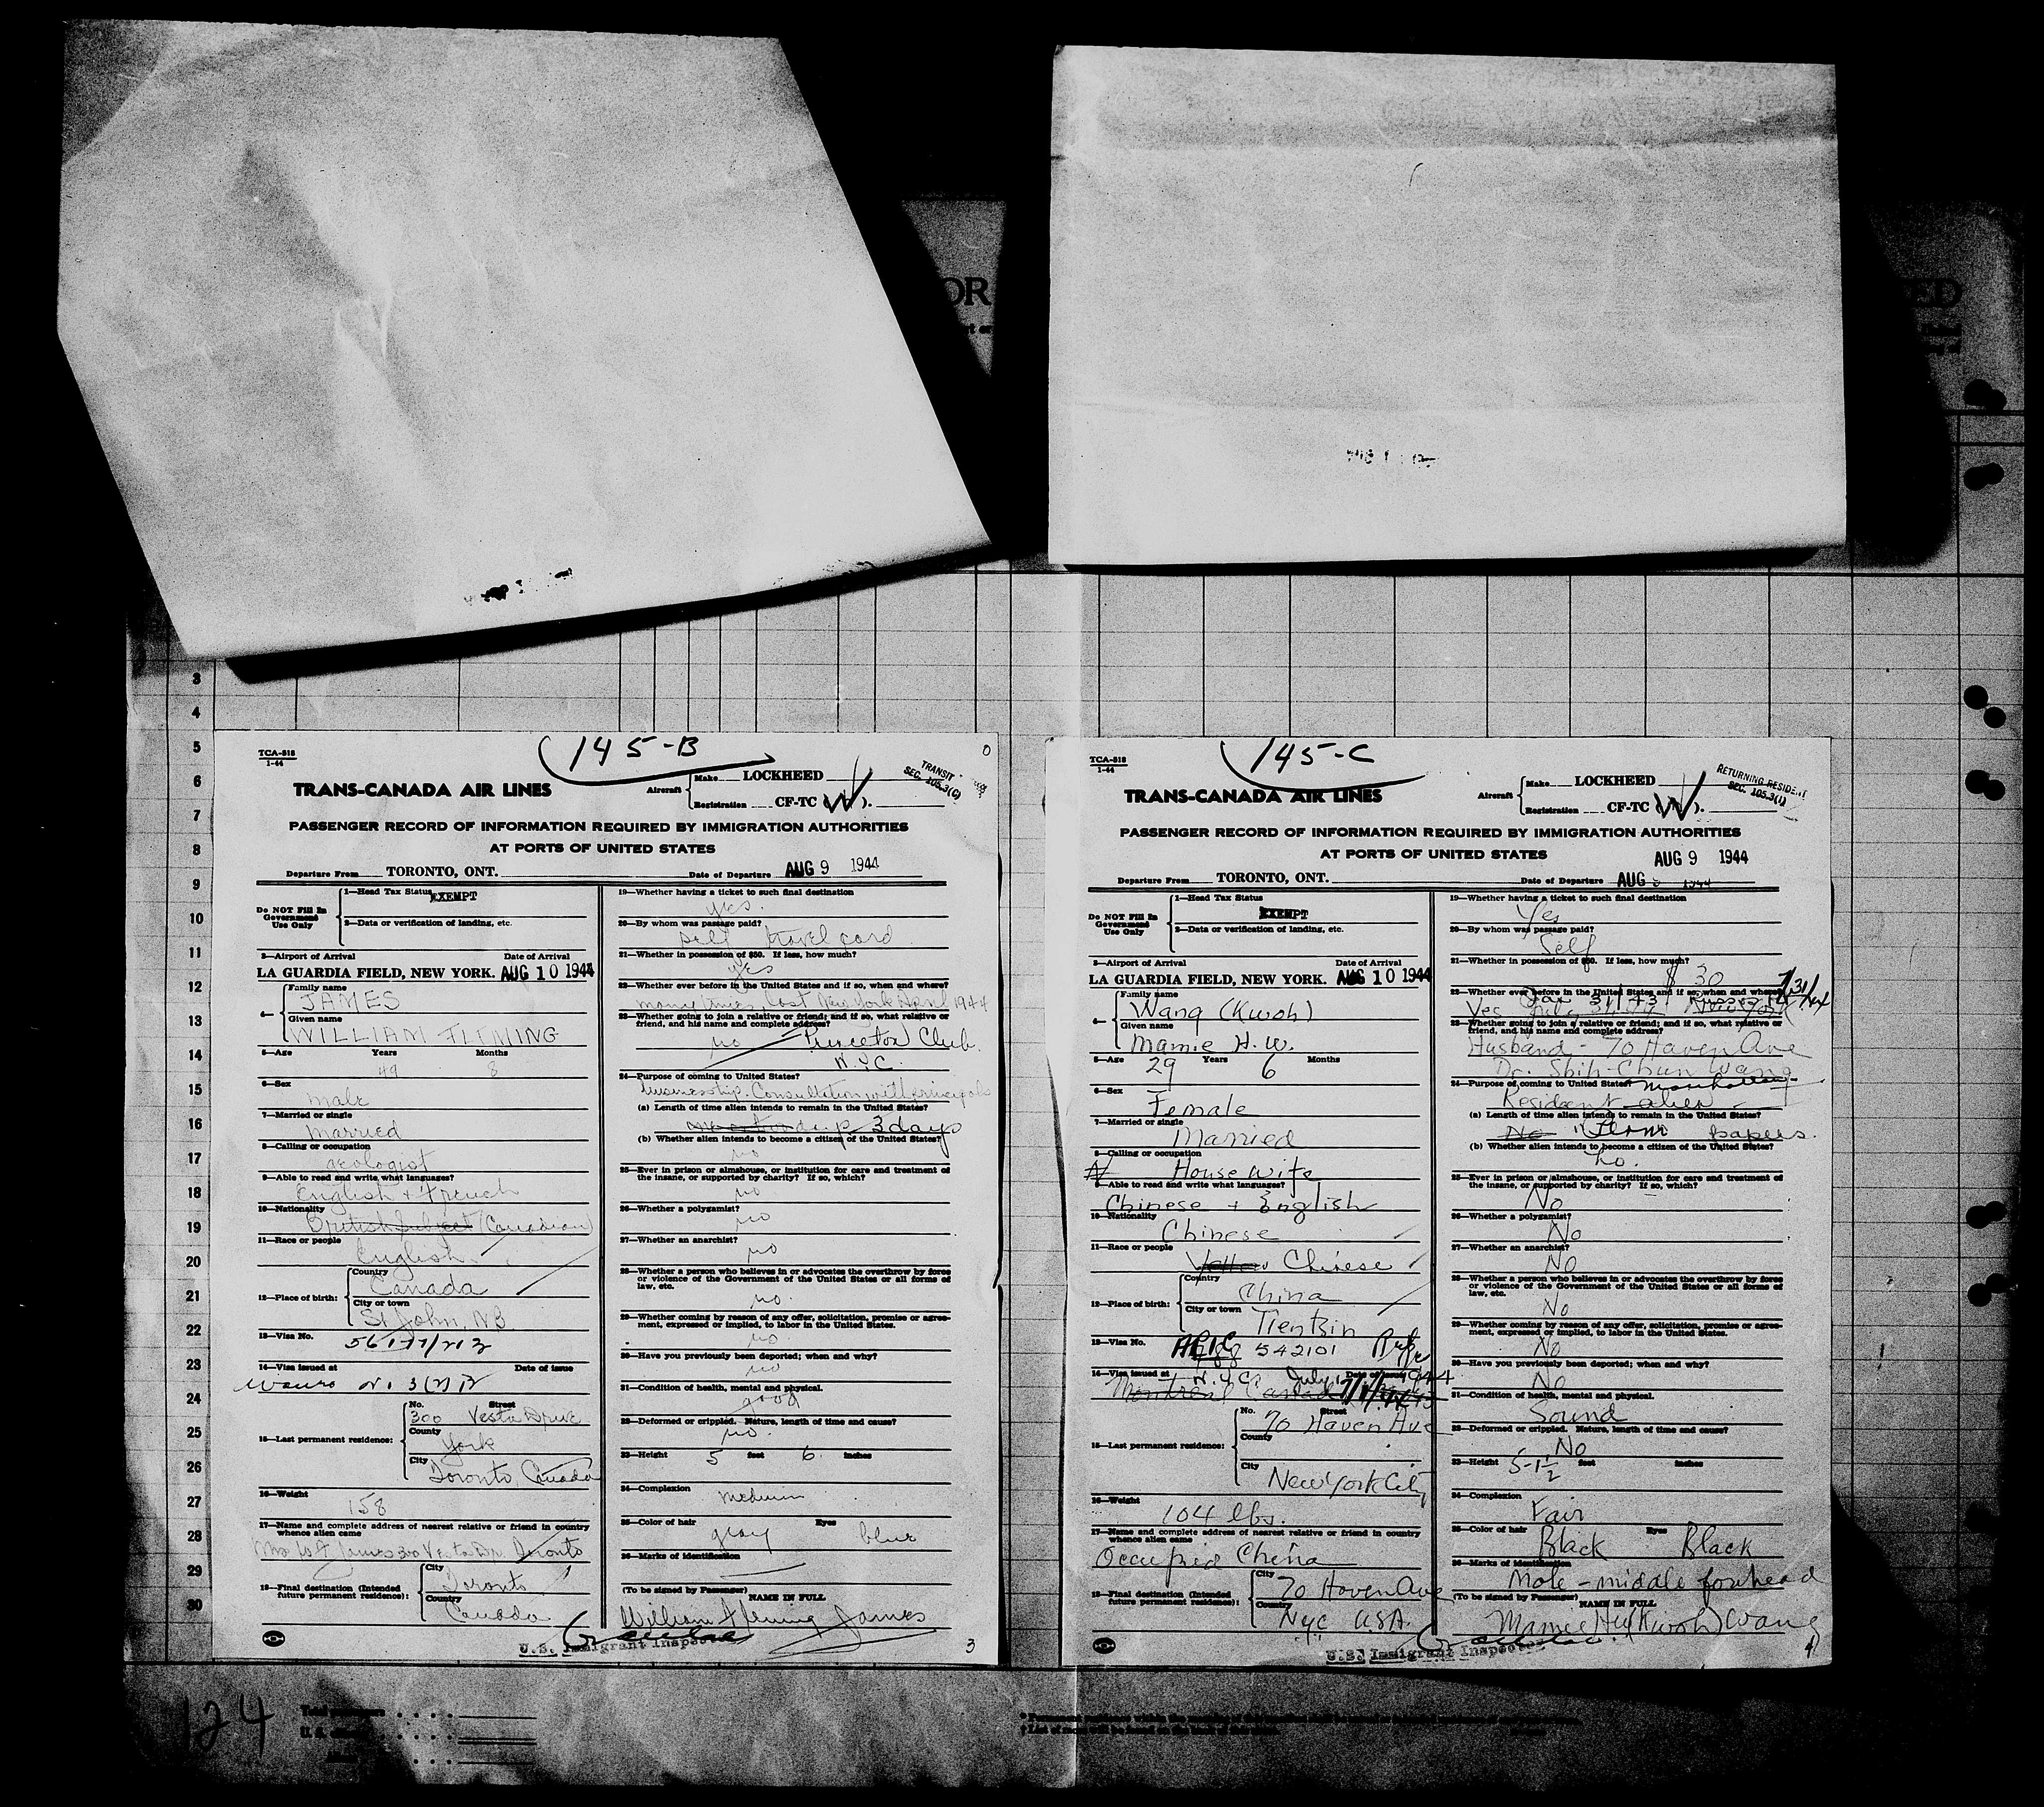 OR
ED
3
4
5
6
7
8
9
10
11
12
13
14
15
16
17
18
19
20
21
22
23
24
25
26
27
28
29
30
145-B
TCA-518
1-44
TRANS-CANADA AIR LINES
Aircraft
Make LOCKHEED
Registration CF-TC ( ).
TRANSIT
SEC. 105.3(C)
PASSENGER RECORD OF INFORMATION REQUIRED BY IMMIGRATION AUTHORITIES
AT PORTS OF UNITED STATES
Departure From TORONTO, ONT. Date of Departure AUG 9 1944
Do NOT Fill In
Government
Use Only
1—Head Tax Status EXEMPT
2—Data or verification of landing, etc.
3—Airport of Arrival Date of Arrival
LA GUARDIA FIELD, NEW YORK. AUG 10 1944
4—
Family name
JAMES
Given name
WILLIAM FLEMING
5—Age Years Months
49 8
6—Sex
male
7—Married or single
married
8—Calling or occupation
geologist
9—Able to read and write what languages?
English + French
10—Nationality
British Subject (Canadian)
11—Race or people
English
12—Place of birth:
Country
Canada
City or town
St John, NB
13—Visa No.
14—Visa issued at Date of issue
15—Last permanent residence:
No. Street
300 Vesta Drive
County
York
City
Toronto, Canada
16—Weight
158
17—Name and complete address of nearest relative or friend in country
whence alien came
Mrs W F James 300 Vesta Dr. Toronto
18—Final destination (Intended
future permanent residence):
City
Toronto
Country
Canada
19—Whether having a ticket to such final destination
yes.
20—By whom was passage paid?
self travel card
21—Whether in possession of $50. If less, how much?
yes
22—Whether ever before in the United States and if so, when and where?
many times last New York April 1944
23—Whether going to join a relative or friend; and if so, what relative or
friend, and his name and complete address?
no Princeton Club.
N.Y.C.
24—Purpose of coming to United States?
Consultation with principals
(a) Length of time alien intends to remain in the United States?
3 days
(b) Whether alien intends to become a citizen of the United States?
no
25—Ever in prison or almshouse, or institution for care and treatment of
the insane, or supported by charity? If so, which?
no
26—Whether a polygamist?
no
27—Whether an anarchist?
no
28—Whether a person who believes in or advocates the overthrow by force
or violence of the Government of the United States or all forms of
law, etc.
no.
29—Whether coming by reason of any offer, solicitation, promise or agree-
ment, expressed or implied, to labor in the United States.
no
30—Have you previously been deported; when and why?
no
31—Condition of health, mental and physical.
good
32—Deformed or crippled. Nature, length of time and cause?
no.
33—Height 5 feet 6 inches
34—Complexion
medium
35—Color of hair Eyes
gray blue
36—Marks of identification
(To be signed by Passenger) NAME IN FULL
William Fleming James
U.S. Immigrant Inspector
3
145-C
TCA-518
1-44
TRANS-CANADA AIR LINES
Aircraft
Make LOCKHEED
Registration CF-TC ( ).
RETURNING RESIDENT
SEC. 105.3(1)
PASSENGER RECORD OF INFORMATION REQUIRED BY IMMIGRATION AUTHORITIES
AT PORTS OF UNITED STATES
AUG 9 1944
Departure From TORONTO, ONT. Date of Departure AUG 1944
Do NOT Fill In
Government
Use Only
1—Head Tax Status
EXEMPT
2—Data or verification of landing, etc.
3—Airport of Arrival Date of Arrival
LA GUARDIA FIELD, NEW YORK. AUG 10 1944
4—
Family name
Wang (Kwoh)
Given name
Mamie H. W.
5—Age Years Months
29 6
6—Sex
Female
7—Married or single
Married
8—Calling or occupation
Housewife
9—Able to read and write what languages?
Chinese + English
10—Nationality
Chinese
11—Race or people
Yellow Chinese
12—Place of birth:
Country
China
City or town
Tientsin
13—Visa No.
542101
14—Visa issued at Date of issue
N.Y.C. July 1944
Montreal Canada
15—Last permanent residence:
No. Street
70 Haven Ave
County
City
New York City
16—Weight
104 lbs.
17—Name and complete address of nearest relative or friend in country
whence alien came
Occupied China
18—Final destination (Intended
future permanent residence):
City
70 Haven Ave
Country
NYC USA.
19—Whether having a ticket to such final destination
Yes
20—By whom was passage paid?
Self
21—Whether in possession of $50. If less, how much?
$ 30
22—Whether ever before in the United States and if so, when and where?
Yes 7/31/44
23—Whether going to join a relative or friend; and if so, what relative or
friend, and his name and complete address?
Husband - 70 Haven Ave
Dr. Shih-Chun Wang
24—Purpose of coming to United States? Manhattan
Resident alien
(a) Length of time alien intends to remain in the United States?
No papers.
(b) Whether alien intends to become a citizen of the United States?
no.
25—Ever in prison or almshouse, or institution for care and treatment of
the insane, or supported by charity? If so, which?
No
26—Whether a polygamist?
No
27—Whether an anarchist?
No
28—Whether a person who believes in or advocates the overthrow by force
or violence of the Government of the United States or all forms of
law, etc.
No
29—Whether coming by reason of any offer, solicitation, promise or agree-
ment, expressed or implied, to labor in the United States.
No
30—Have you previously been deported; when and why?
No
31—Condition of health, mental and physical.
Sound
32—Deformed or crippled. Nature, length of time and cause?
No
33—Height 5-1½ feet inches
34—Complexion
Fair
35—Color of hair Eyes
Black Black
36—Marks of identification
Mole - middle forehead
(To be signed by Passenger) NAME IN FULL
Mamie Hu (Kwoh) Wang
U.S. Immigrant Inspector
4
124